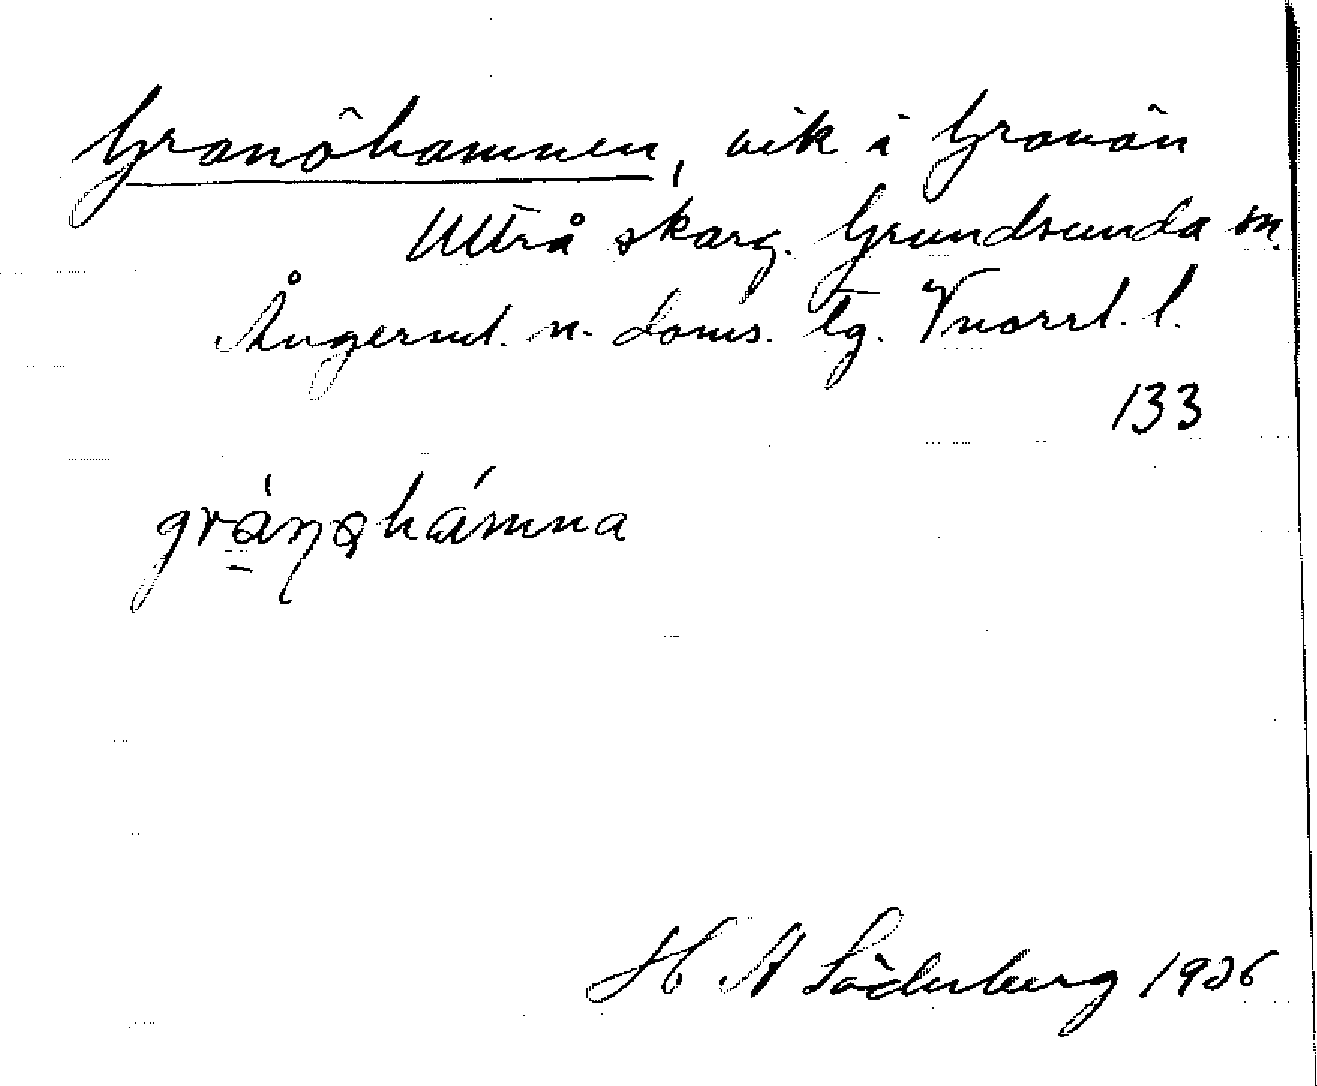 Granöhamnen, vik i Granön
Ultrå skarg. Grundsunda sn.
Ångerml. n. doms. tg. Vnorrl. l.
133
H A Söderberg 1926